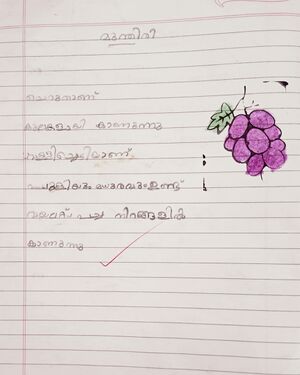 മുന്തിരി
ചെറുതാണ്
കുലകളായി കാണുന്നു
വള്ളിച്ചെടിയാണ്
പുളിയും മധുരവും ഉണ്ട്
വയലറ്റ് പച്ച നിറങ്ങളിൽ
കാണുന്നു